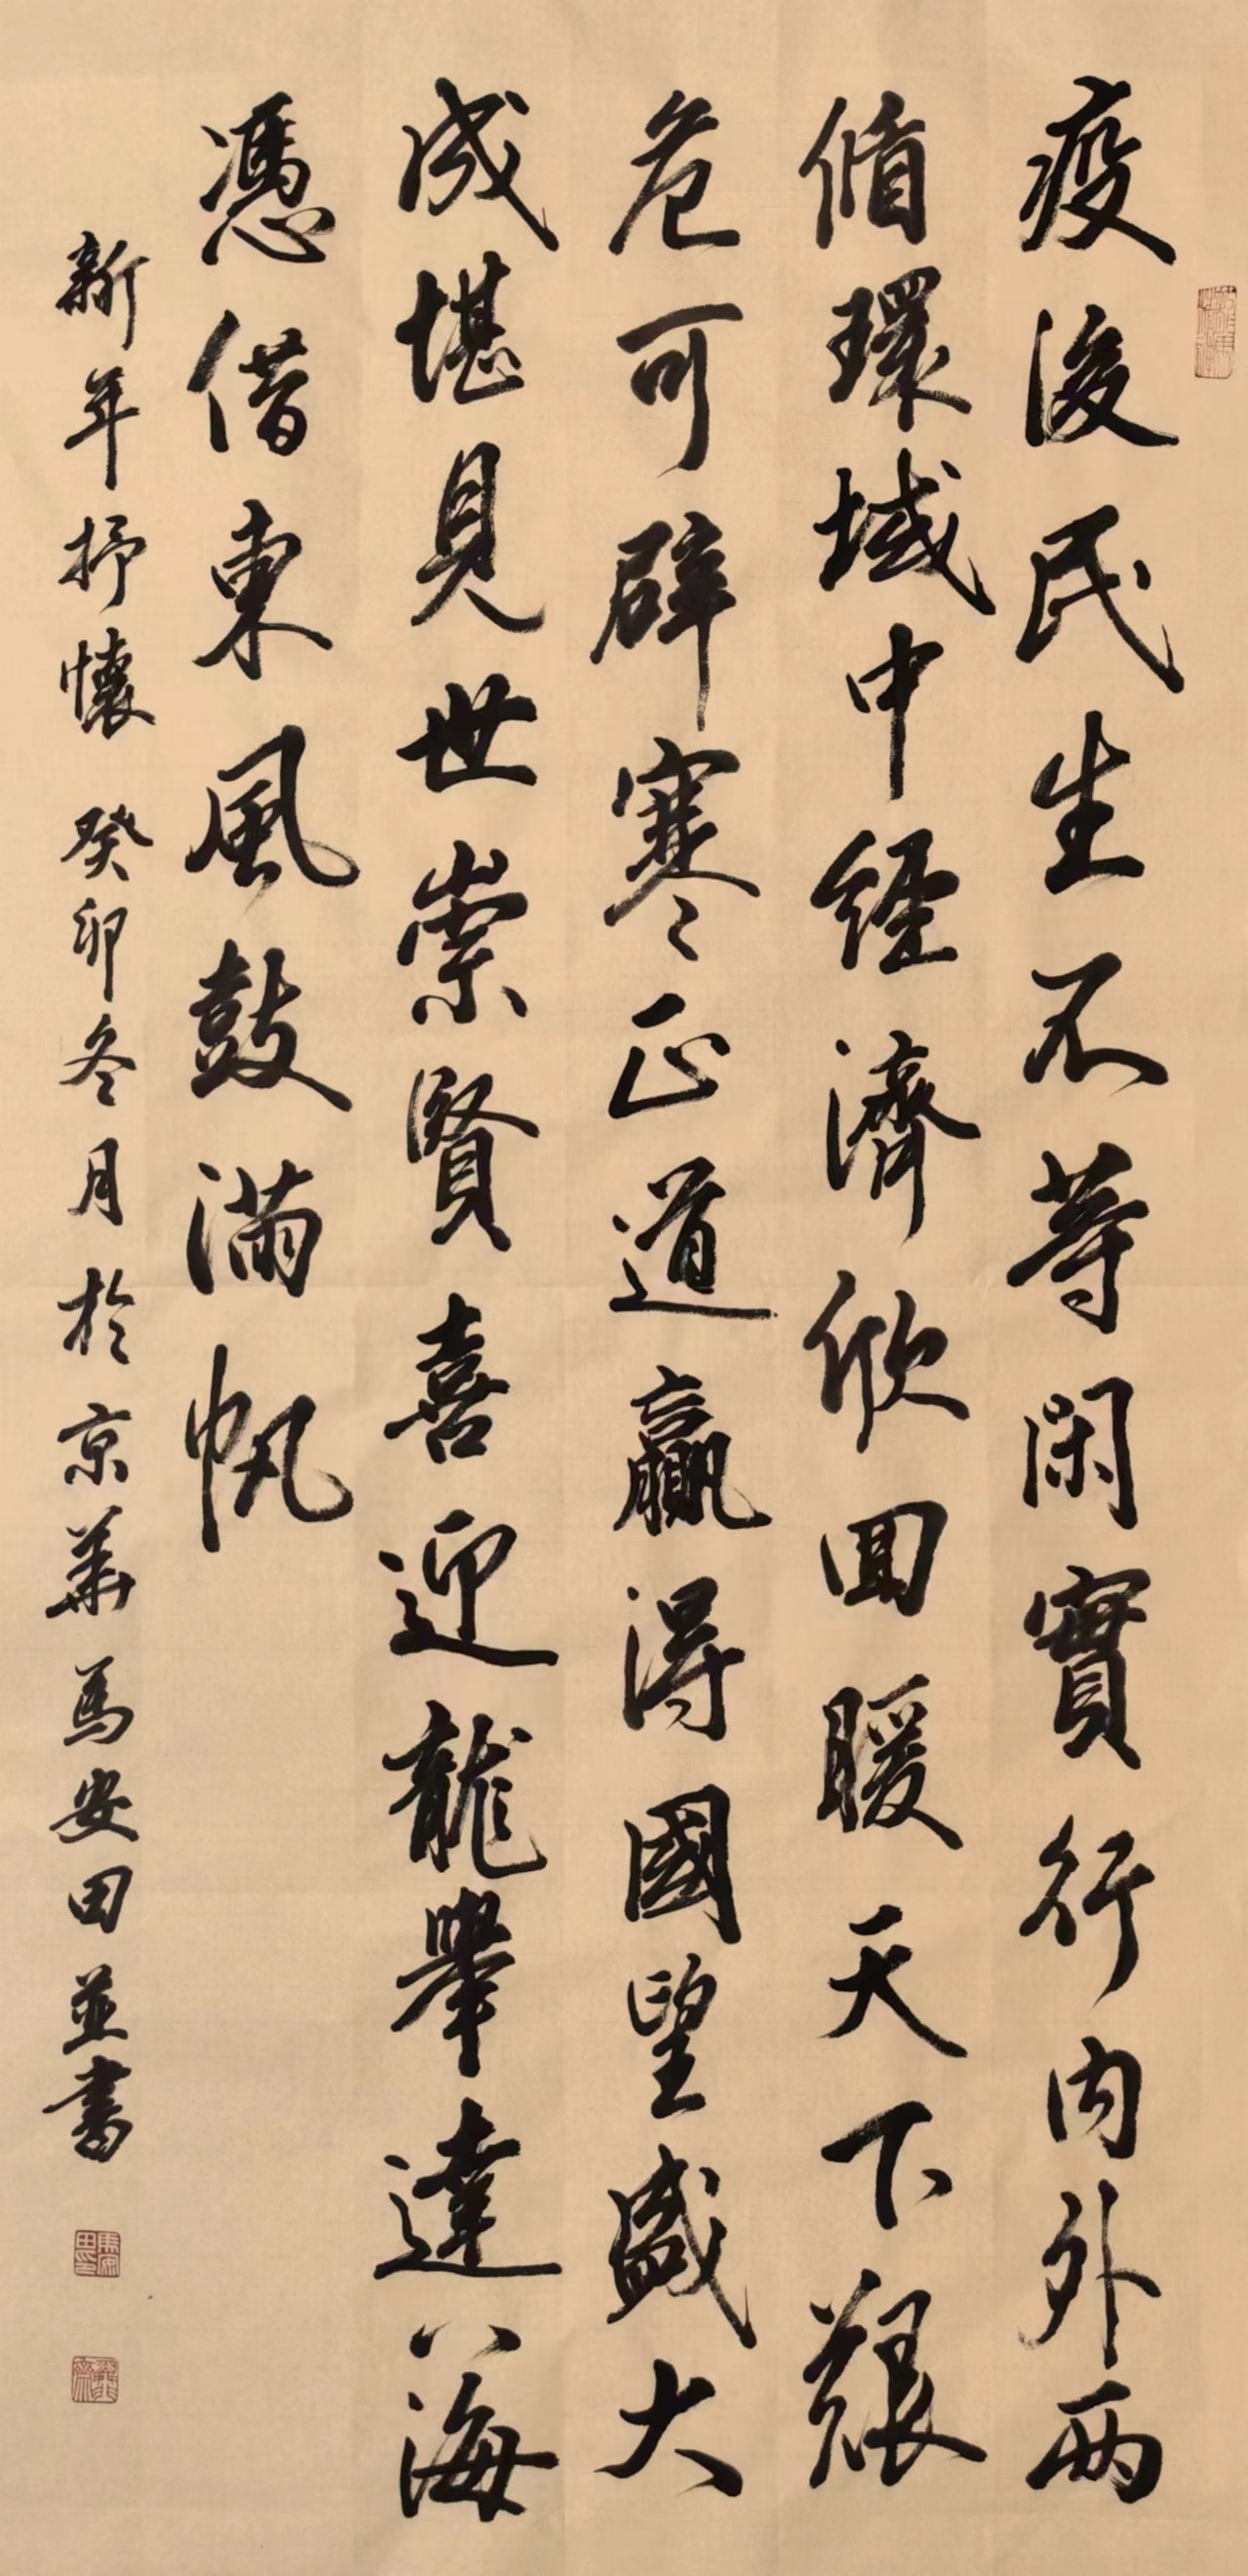 疫後民生不等閑實行内外兩
循環域中經濟欣回暖天下艱
危可辟寒正道贏得國望盛大
成堪見世崇賢喜迎龍舉達八海
憑借東風鼓滿帆
新年抒懷 癸卯冬月於京華馬安田並書
馬安田印